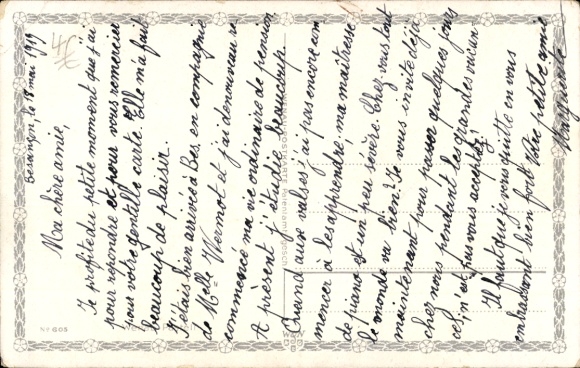 Besançon, le 8 mai 1919
Ma chère amie,
Je profite du petit moment que j'ai
pour répondre et pour vous remercier
pour votre gentille carte. Elle m'a fait
beaucoup de plaisir.
J'étais bien arrivée à Bes. en compagnie
de Melle Vernot et j'ai de nouveau re
commencé ma vie ordinaire de pension
A présent j'étudie beaucoup.
Quand aux valses j'ai pas encore com
mencer à les apprendre, ma maîtresse
de piano est un peu sévère. Chez vous tout
le monde va bien? Je vous invite déjà
maintenant pour passer quelques jours
chez nous pendant les grandes vacan-
ces, n'est-ce pas vous acceptez!
Il faut que je vous quitte en vous
embrassant bien fort. Votre petite amie
Marguerite
No 605